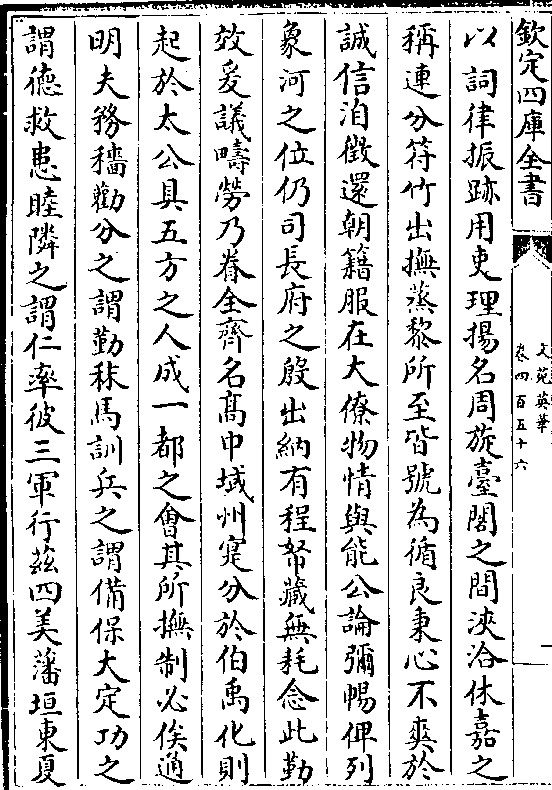 欽定四庫全書
文苑英華
卷四百五十六
以詞律振跡用吏理揚名周旋臺閣之間浹洽休嘉之
稱連分符竹出撫蒸黎所至皆號為循良秉心不爽於
誠信洎徵還朝籍服在大僚物情與能公論彌暢俾列
象河之位仍司長府之殷出納有程帑藏無耗念此勤
效爰議疇勞乃眷全齊名髙中域州寔分於伯禹化則
起於太公具五方之人成一都之會其所撫制必俟通
明夫務穡勸分之謂勤秣馬訓兵之謂備保大定功之
謂徳救患睦隣之謂仁率彼三軍行兹四美藩垣東夏